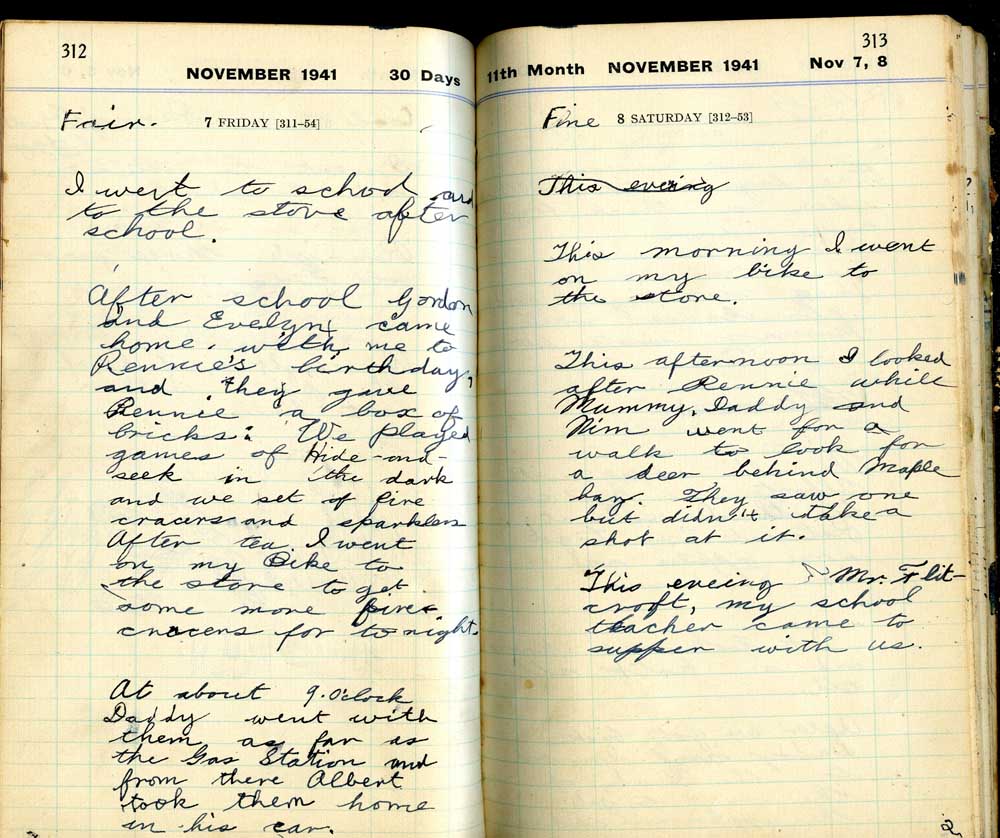 312
NOVEMBER 1941 30 Days
Fair. 7 FRIDAY [311–54]
I went to school and
to the store after
school.
After school Gordon
and Evelyn came
home with me to
Rennie's birthday,
and they gave
Rennie a box of
bricks. We played
games of Hide-and-
seek in the dark
and we set of fire
cracers and sparklers
After tea I went
on my Bike to
the store to get
some more fire
cracers for to night.
At about 9.O'clock
Daddy went with
them as far as
the Gas Station and
from there Albert
took them home
in his car.
313
11th Month NOVEMBER 1941 Nov 7, 8
Fine 8 SATURDAY [312–53]
This evening
This morning I went
on my bike to
the store.
This afternoon I looked
after Rennie while
Mummy, Daddy and
Nim went for a
walk to look for
a deer behind Maple
bay. They saw one
but didn't take a
shot at it.
This eveing Mr. Flit-
croft, my school
teacher came to
supper with us.
2